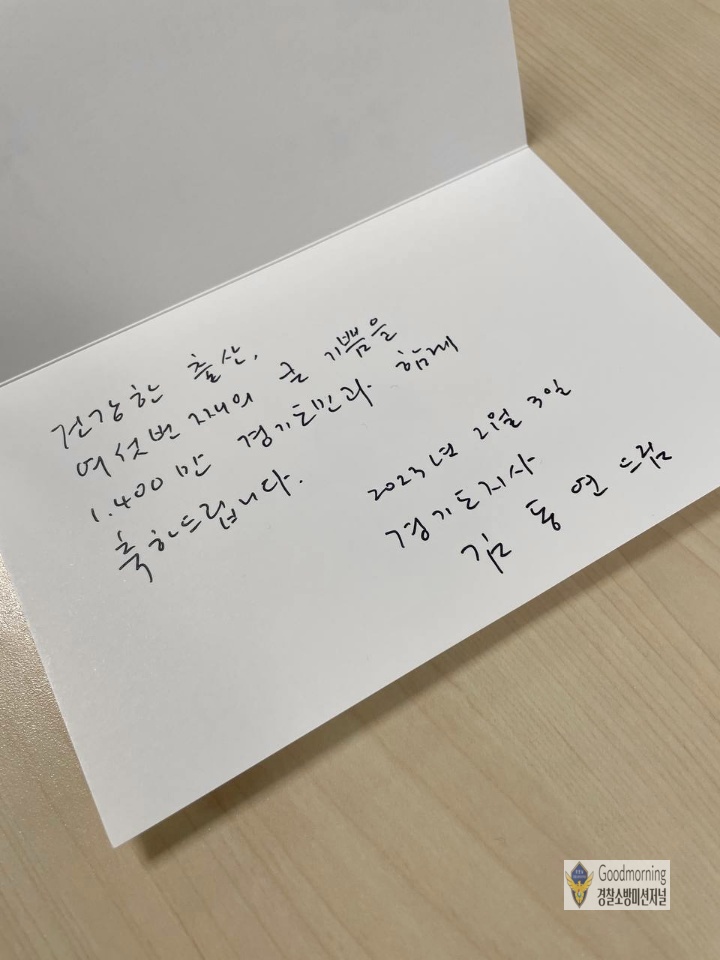 건강한 출산,
여섯번째의 큰 기쁨을
1,400만 경기도민과 함께
축하드립니다.
2023년 2월 3일
경기도지사
김동연 드림
Goodmorning
경찰소방미션저널